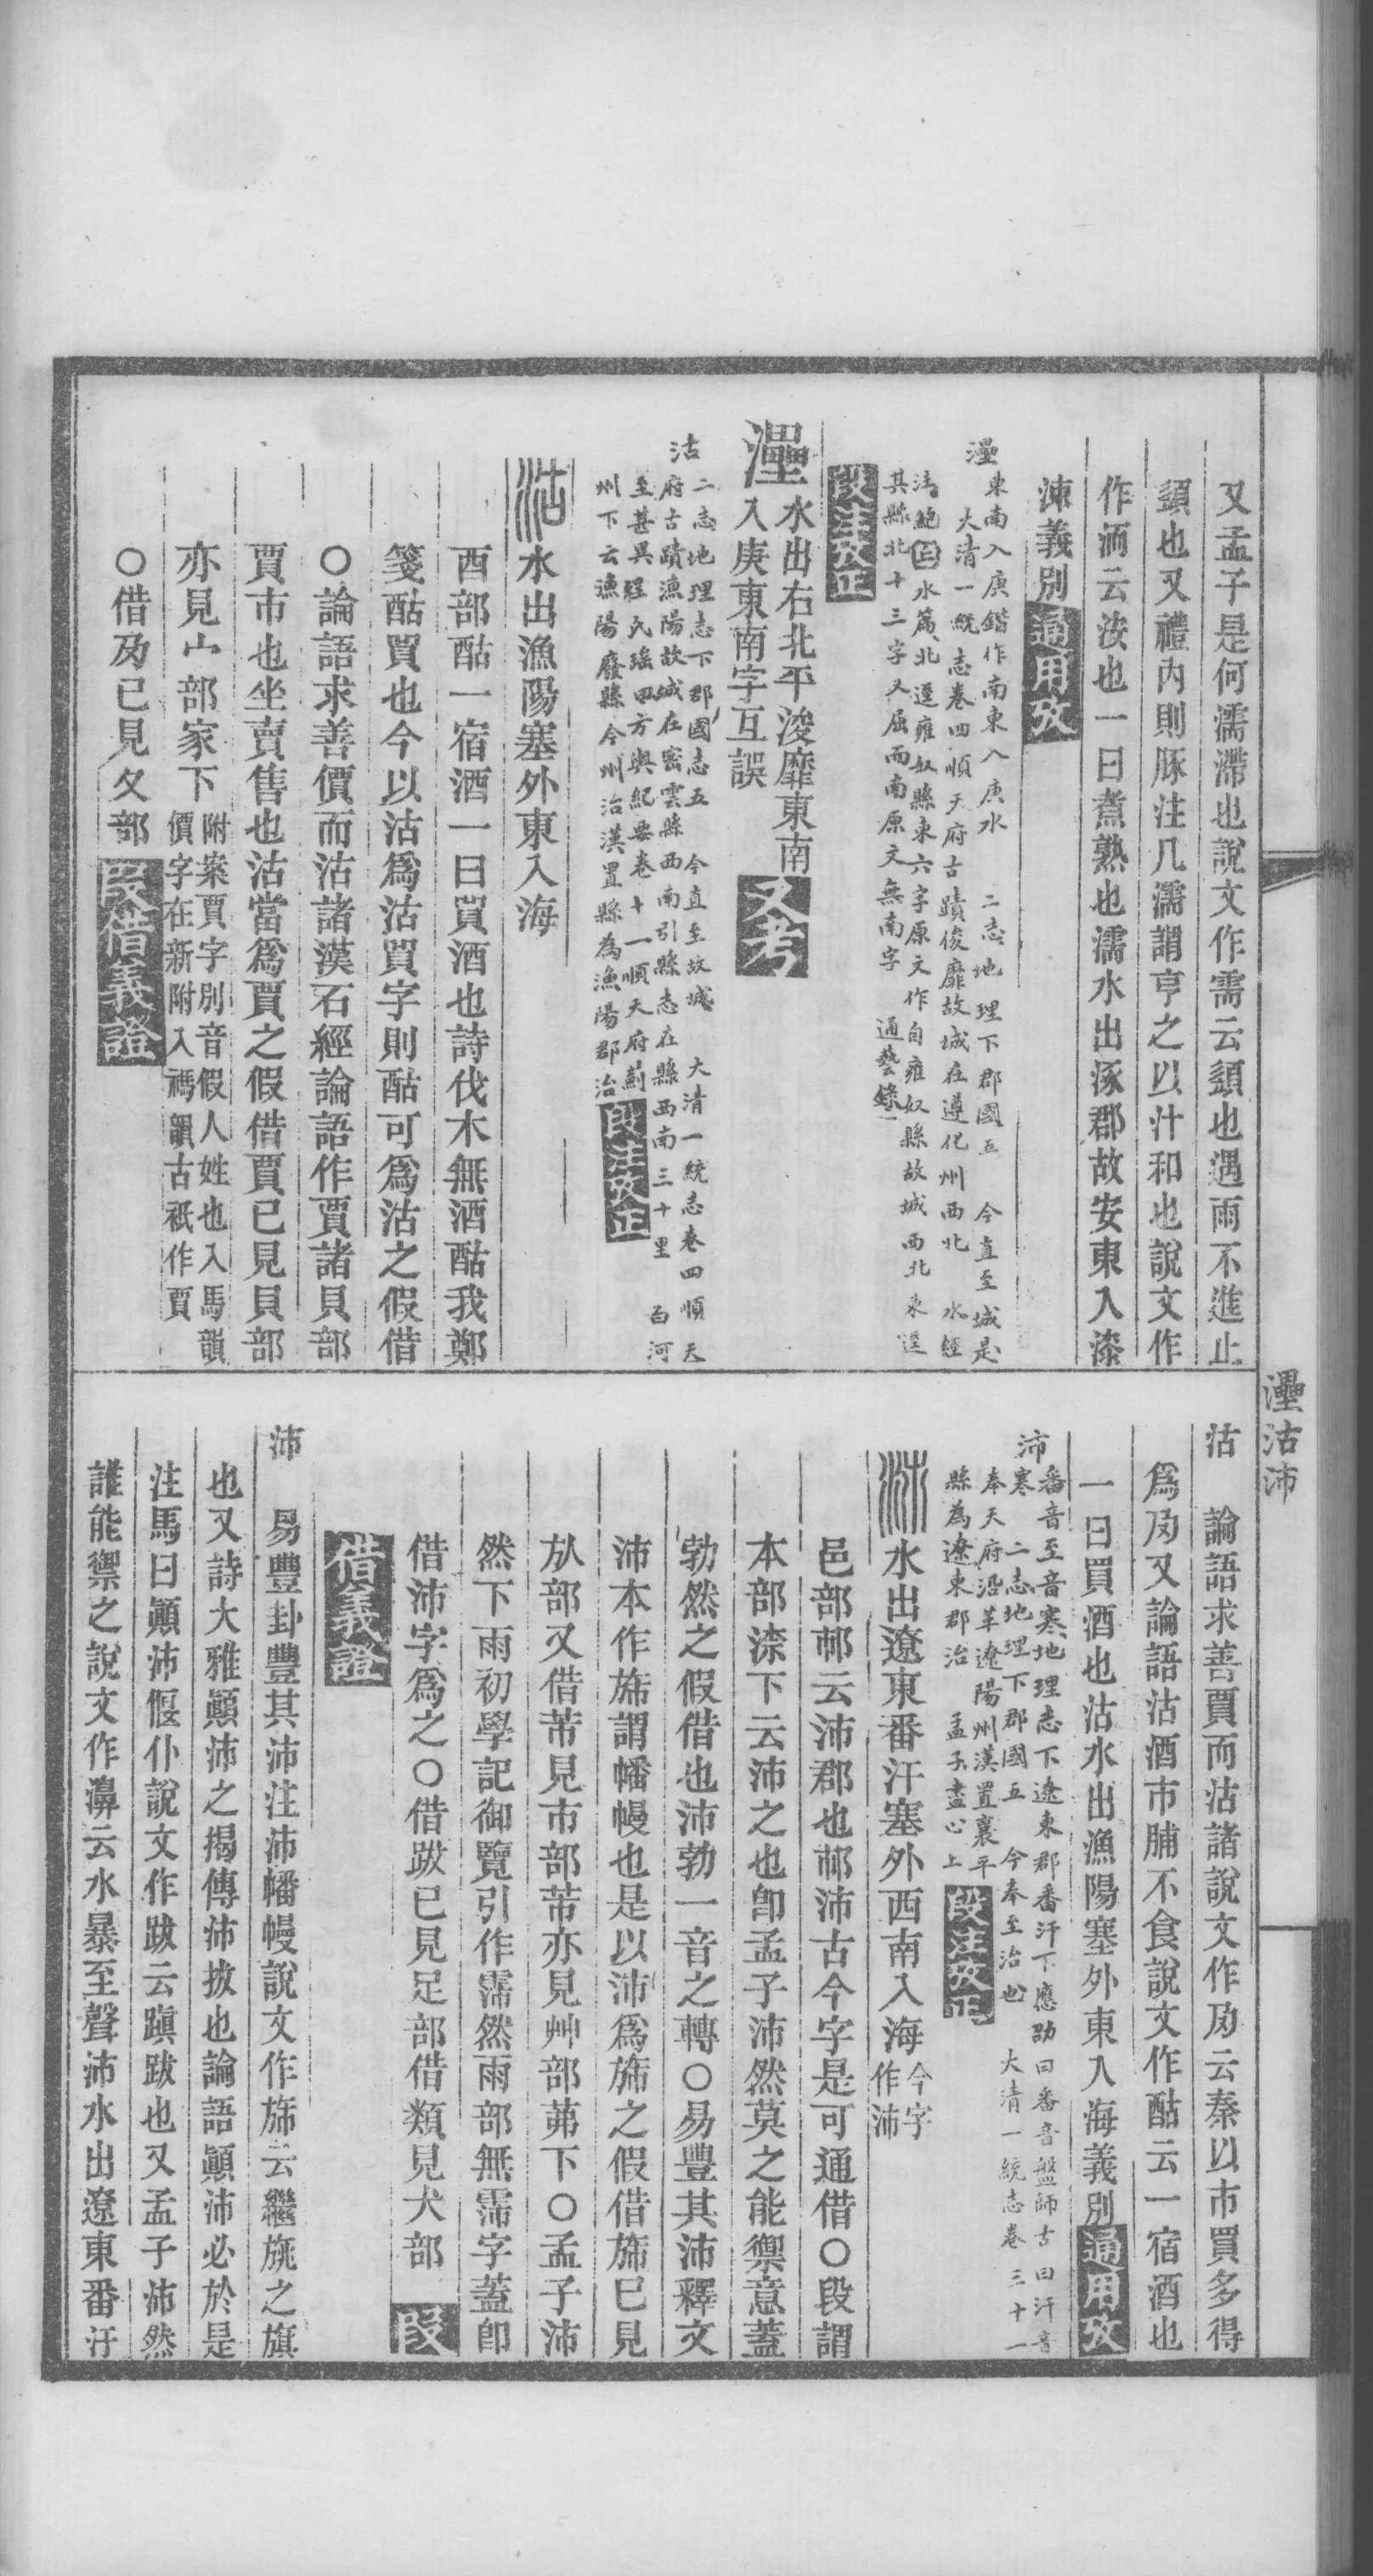 又孟子是何濡滯也說文作需云䇓也遇雨不進止
䇓也又禮內則豚注凡濡謂亨之以汁和也說文作
作洏云洝也一曰煮熟也濡水出涿郡故安東入漆
涑義別通用攷
灅東南入庚鍇作南東入庚水 二志地理下郡國五 今直至城是
大清一統志卷四順天府古蹟俊靡故城在遵化州西北 水經
注鮑丘水篇北逕雍奴縣東六字原文作自雍奴縣故城西北東逕
其縣北十三字又屈而南原文無南字 通藝錄一
段注攷正
灅水出右北平浚靡東南
入庚東南字互誤
又考
沽二志地理志下郡國志五 今直至故城 大清一統志卷四順天
府古蹟漁陽故城在密雲縣西南引縣志在縣西南三十里 白河
至甚異 程氏瑤田方輿紀要卷十一順天府薊
州下云漁陽廢縣今州治漢置縣為漁陽郡治段注攷正
沽水出漁陽塞外東入海
酉部酤一宿酒一曰買酒也詩伐木無酒酤我鄭
箋酤買也今以沽爲沽買字則酤可爲沽之假借
〇論語求善價而沽諸漢石經論語作賈諸貝部
賈市也坐賣售也沽當爲賈之假借賈已見貝部
亦見宀部家下附案賈字別音假人姓也入馬韻
價字在新附入禡韻古祇作賈
〇借夃已見夂部段借義證
灅沽沛
沽 論語求善賈而沽諸說文作夃云秦以市買多得
爲夃又論語沽酒市脯不食說文作酤云一宿酒也
一曰買酒也沽水出漁陽塞外東入海義別通用攷
沛番音至音寒地理志下遼東郡番汗下應劭曰番音盤師古曰汗音
寒 二志地理下郡國五 今奉至治也 大清一統志卷三十一
奉天府沿革遼陽州漢置襄平
縣為遼東郡治 孟子盡心上段注攷正
沛水出遼東番汗塞外西南入海今字
作沛
邑部䣎云沛郡也䣎沛古今字是可通借〇段謂
本部渿下云沛之也卽孟子沛然莫之能禦意蓋
勃然之假借也沛勃一音之轉〇易豐其沛釋文
沛本作旆謂幡幔也是以沛爲旆之假借旆已見
㫃部又借芾見巿部芾亦見艸部茀下〇孟子沛
然下雨初學記御覽引作霈然雨部無霈字蓋卽
借沛字爲之〇借跋已見足部借類見犬部 段
借義證
沛 易豐卦豐其沛注沛幡幔說文作旆云繼旐之旗
也又詩大雅顚沛之揭傳沛拔也論語顚沛必於是
注馬曰顚沛偃仆說文作跋云蹎跋也又孟子沛然
誰能禦之說文作濞云水暴至聲沛水出遼東番汗